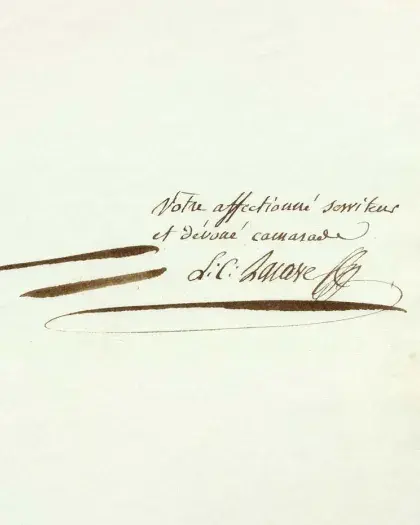 Votre affectionné serviteur
et dévoué camarade
L: C: Lacave